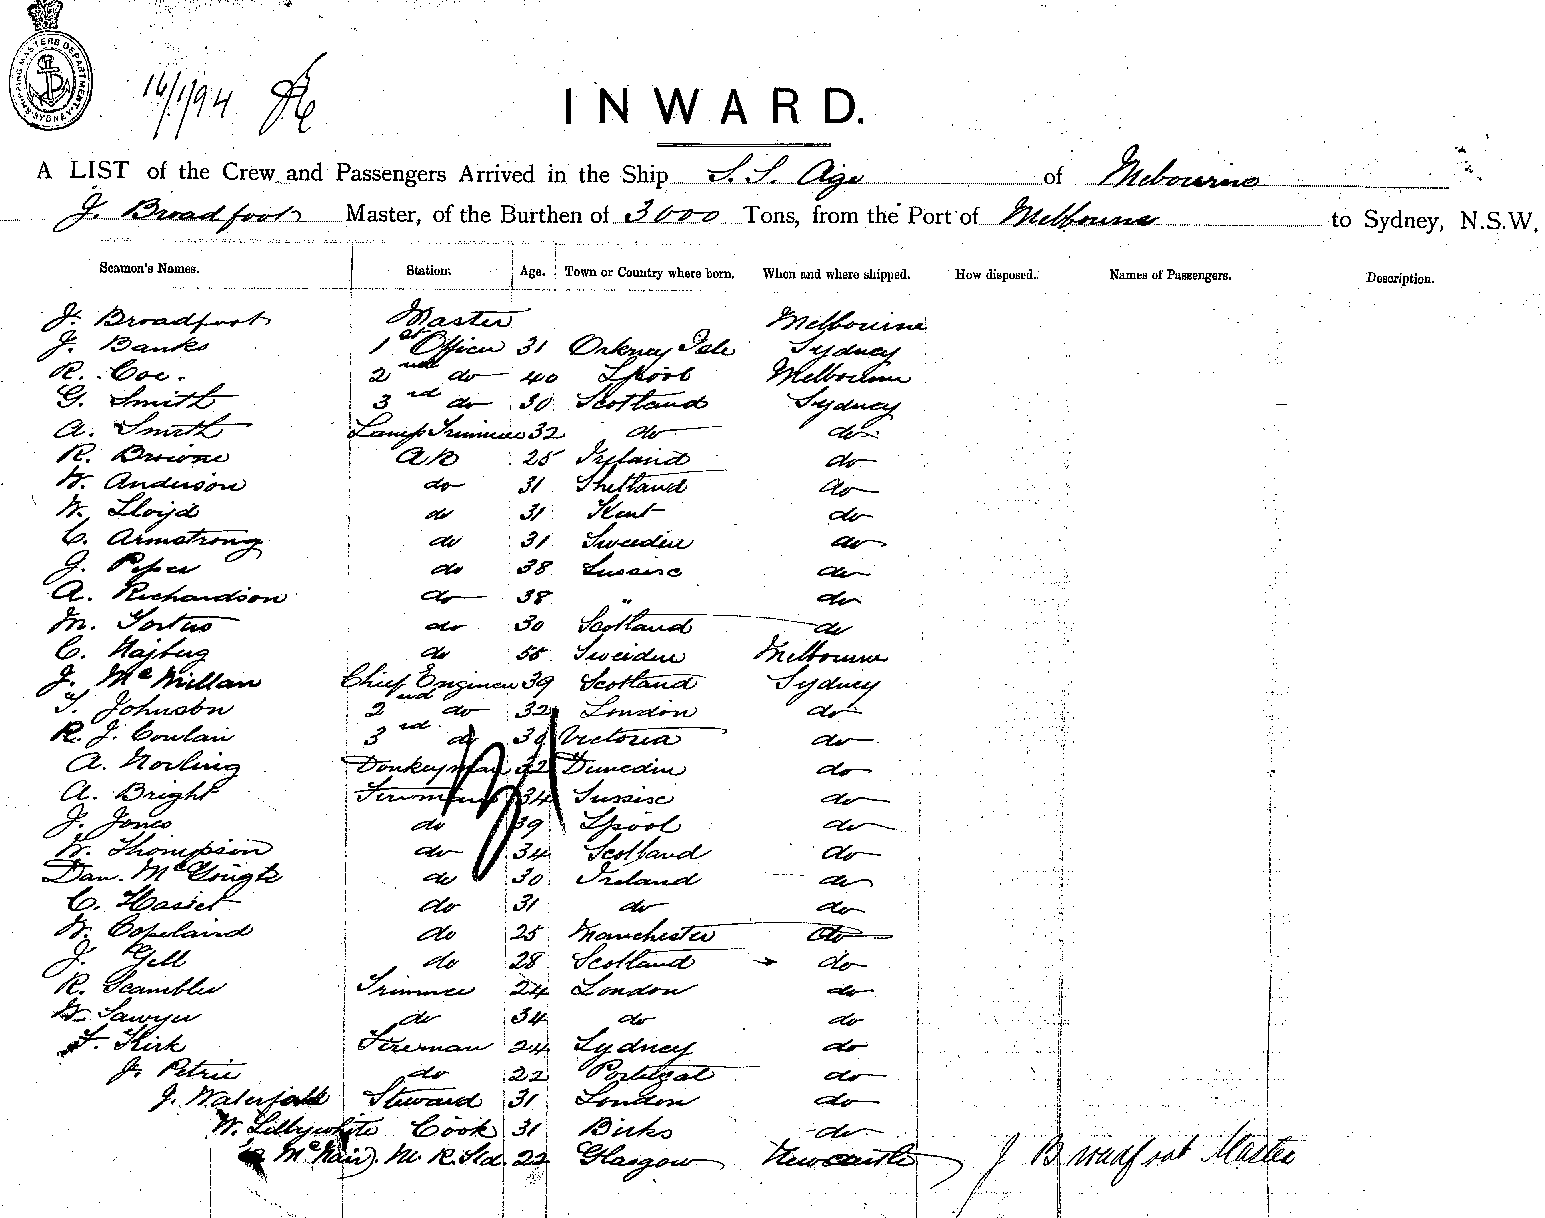 SHIPPING MASTERS DEPARTMENT SYDNEY
16/1/94
INWARD.
A LIST of the Crew and Passengers Arrived in the Ship S. S. Age of Mebourne
J. Broadfoot Master, of the Burthen of 3000 Tons, from the Port of Melbourne to Sydney, N.S.W.
Seamen's Names. Station. Age. Town or Country where born. When and where shipped. How disposed. Names of Passengers. Description.
J. Broadfoot Master Melbourne
J. Banks 1st Officer 31 Orkney Isle Sydney
R. Coe. 2nd do 40 Lpool Melbourne
G. Smith 3rd do 30 Scotland Sydney
A. Smith Lamp Trimmer 32 do do
R. Browne AB 25 Ireland do
W. Anderson do 31 Shetland do
W. Lloyd do 31 Kent do
C. Armstrong do 31 Sweeden do
J. Piper do 38 Sussex do
A. Richardson do 38 " do
M. do 30 Scotland do
C. Najberg do 55 Sweiden Melbourne
J. McMillan Chief Engineer 39 Scotland Sydney
T. Johnson 2nd do 32 London do
R. J. 3rd do Victoria do
A. Norling Donkeyman 32 Dunedin do
A. Bright Firemans 34 Sussex do
J. Jones do 39 Lpool do
W. Thompson do 34 Scotland do
Dan. do 30 Ireland do
C. Hasset do 31 do do
W. Copelaind do 25 Manchester do
J. Gell do 28 Scotland do
R. Scambler Trimmer 24 London do
W. Sawyer do 34 do do
F. Kirk Fireman 24 Sydney do
J. Petrie do 22 Portugal do
J. Waterfall Steward 31 London do
W. Lillywhite Cook 31 Birks do
McNair M. R. Std. 22 Glasgow Newcastle J Broadfoot Master